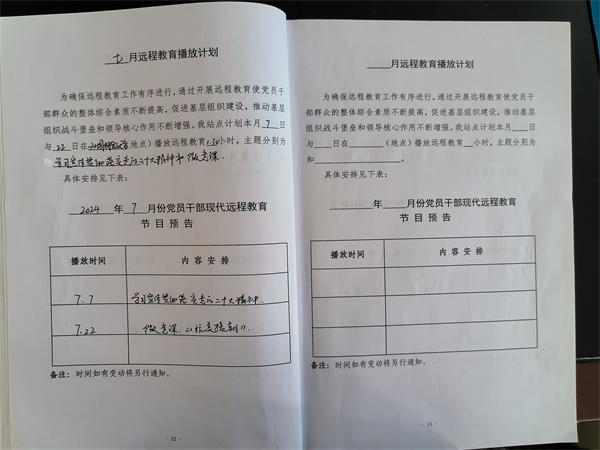 七月远程教育播放计划
为确保远程教育工作有序进行,通过开展远程教育使党员干
部群众的整体综合素质不断提高,促进基层组织建设,推动基层
组织战斗堡垒和领导核心作用不断增强。我站点计划本月 7 日
与 22 日在(地点)播放远程教育小时,主题分别为
学习宣传贯彻落实党的二十大精神和微党课。
具体安排见下表:
2024 年 7 月份党员干部现代远程教育
节目预告
播放时间 内容安排
7.7 学习宣传贯彻落实党的二十大精神
7.22 微党课
备注:时间如有变动将另行通知。
- 12 -
____月远程教育播放计划
为确保远程教育工作有序进行,通过开展远程教育使党员干
部群众的整体综合素质不断提高,促进基层组织建设,推动基层
组织战斗堡垒和领导核心作用不断增强。我站点计划本月____日
与____日在________(地点)播放远程教育__小时,主题分别为
和____________________。
具体安排见下表:
________年____月份党员干部现代远程教育
节目预告
播放时间 内容安排
备注:时间如有变动将另行通知。
- 13 -